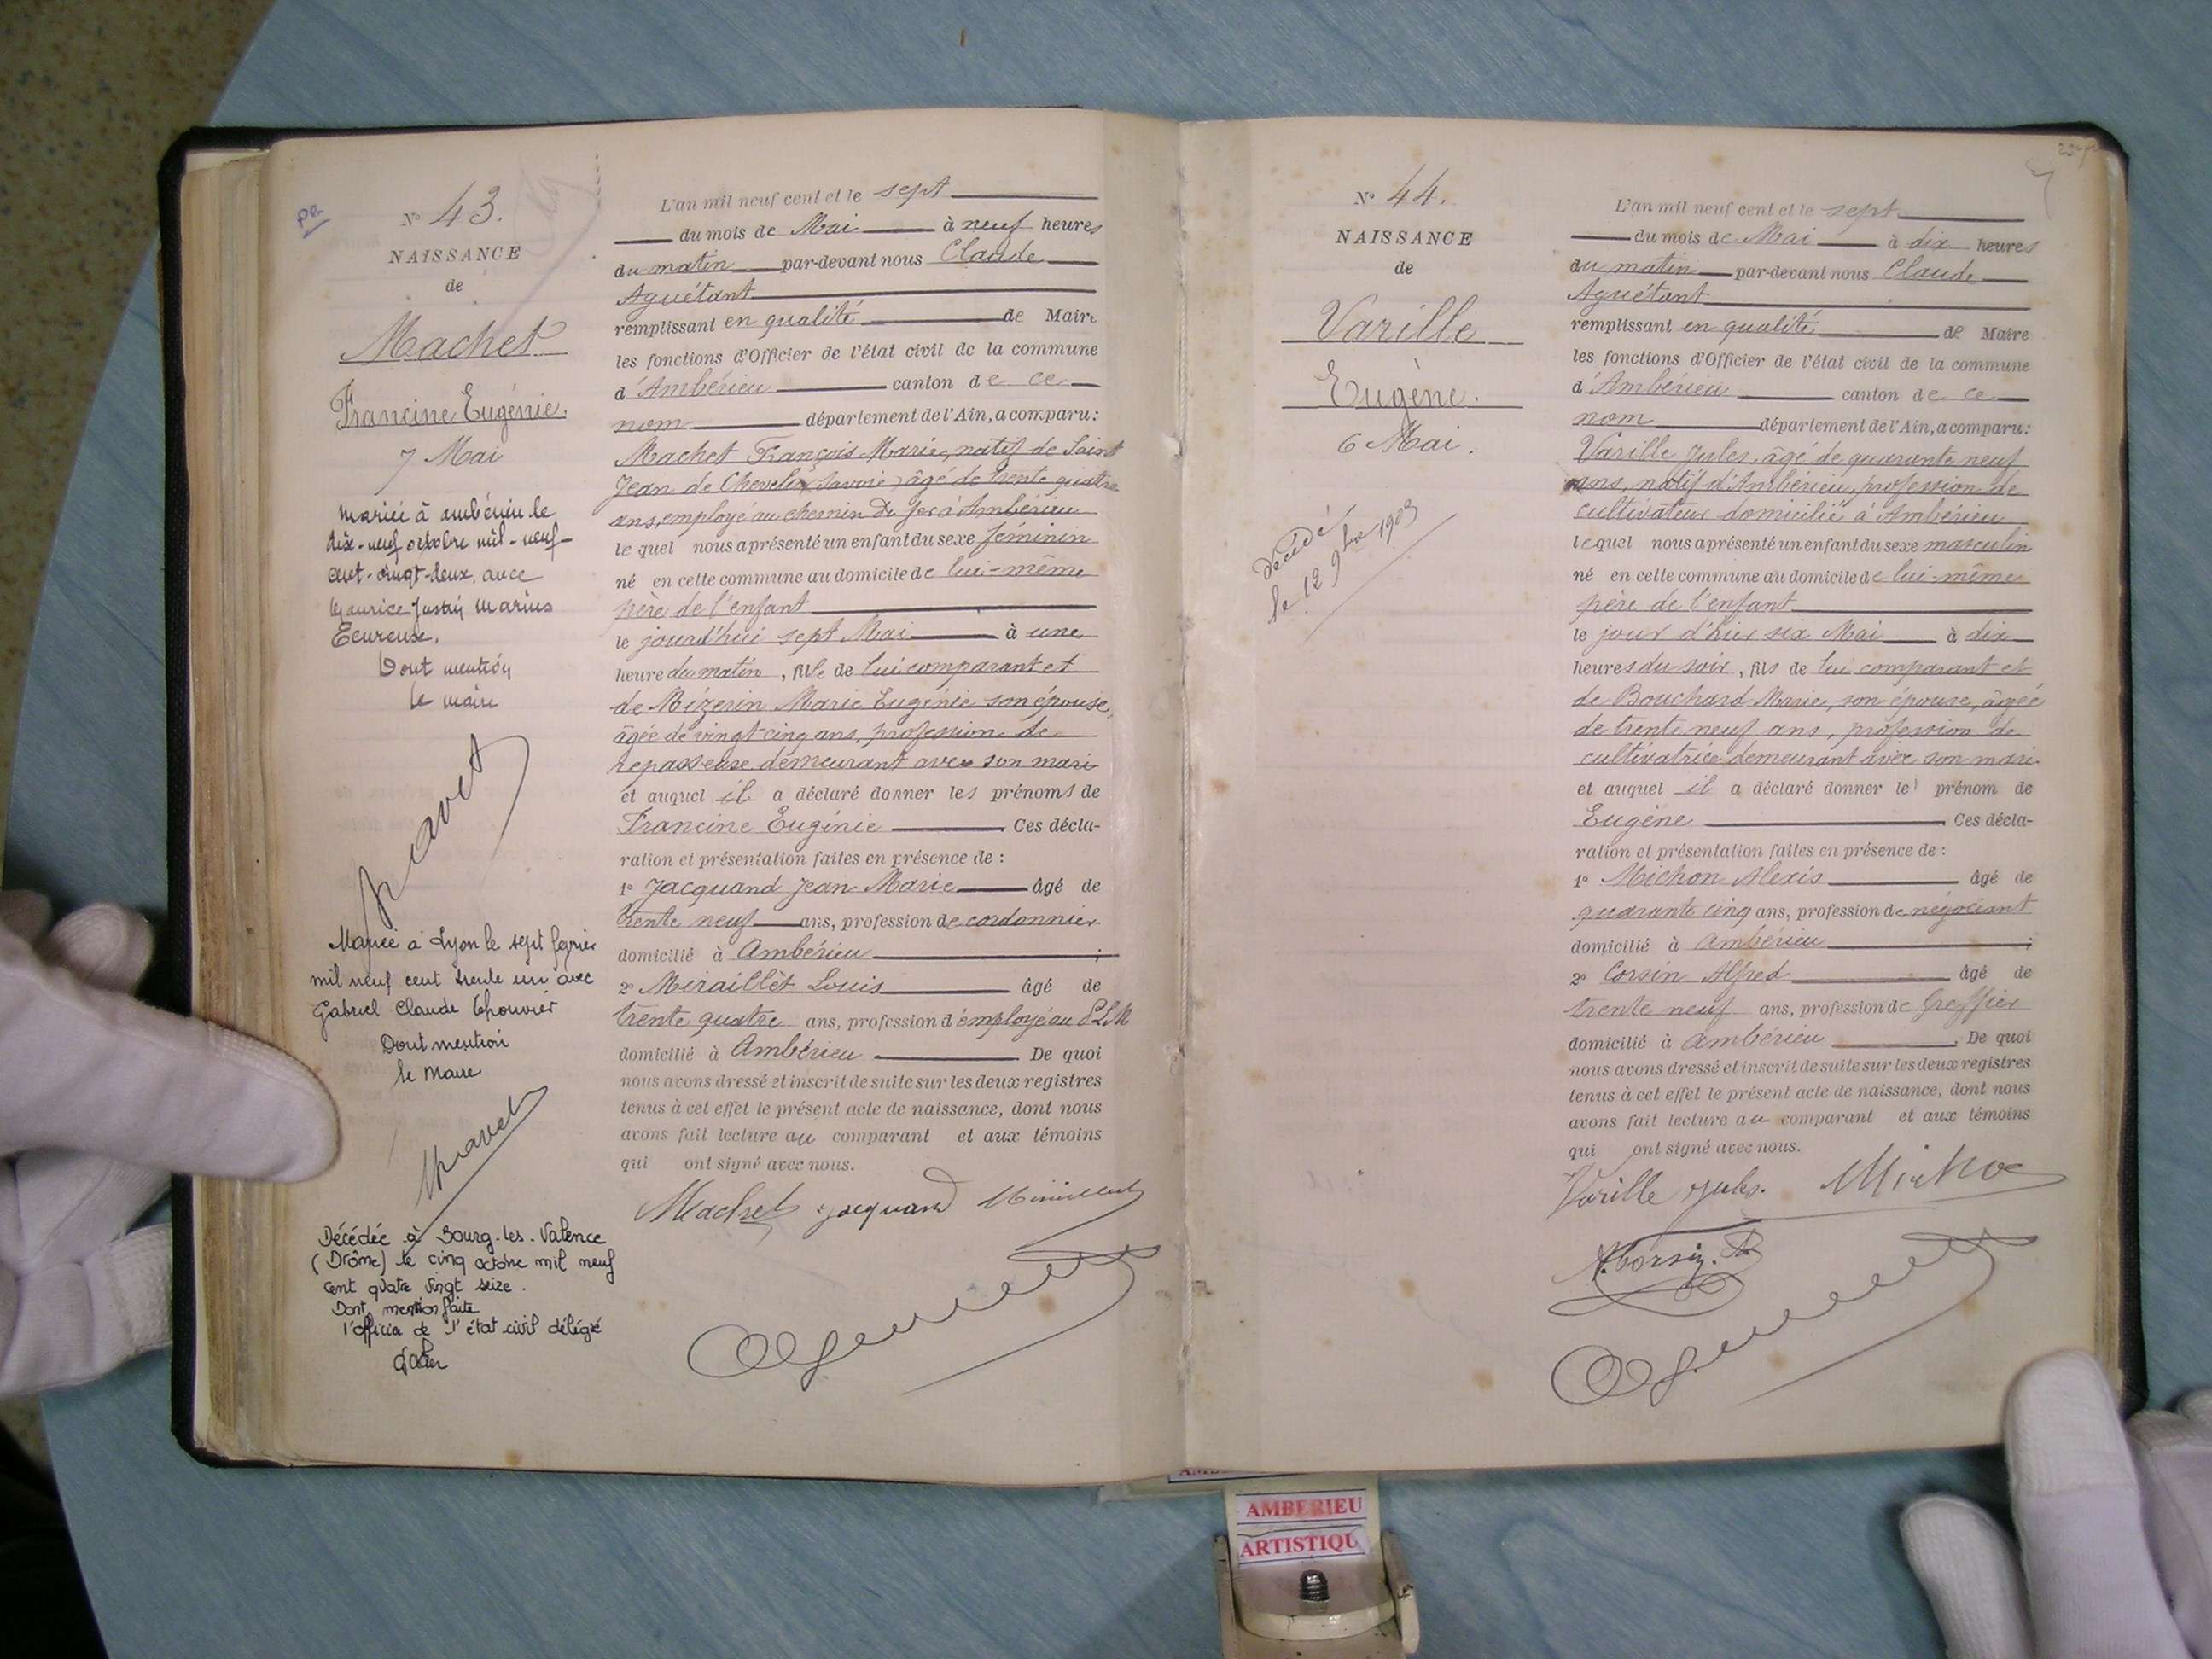 N° 43.
NAISSANCE
de
Machet
Francine Eugénie.
7 Mai
Mariée à Ambérieu le
dix-neuf octobre mil-neuf-
cent-vingt-deux avec
Maurice Justin Marius
Ecureux.
Dont mention
le maire
Mariée à Lyon le sept février
mil neuf cent trente un avec
Gabriel Claude Thouvier
Dont mention
le Maire
Décédée à Bourg-les-Valence
(Drôme) le cinq octobre mil neuf
cent quatre vingt seize.
Dont mention faite
l'officier de l'état civil délégué
L'an mil neuf cent et le sept
du mois de Mai à neuf heures
du matin par-devant nous Claude
Aguétant
remplissant en qualité de Maire
les fonctions d'Officier de l'état civil de la commune
d'Ambérieu canton de ce
nom département de l'Ain, a comparu:
Machet François Marie, natif de Saint
Jean de Chevelu, Savoie, âgé de trente quatre
ans, employé au chemin de fer à Ambérieu
lequel nous a présenté un enfant du sexe féminin
né en cette commune au domicile de lui-même
père de l'enfant
le jourd'hui sept Mai à une
heure du matin, fille de lui comparant et
de Mézerin Marie Eugénie son épouse,
âgée de vingt cinq ans, profession de
repasseuse demeurant avec son mari
et auquel il a déclaré donner les prénoms de
Francine Eugénie Ces décla-
ration et présentation faites en présence de :
1° Jacquand Jean Marie âgé de
trente neuf ans, profession de cordonnier
domicilié à Ambérieu ;
2° Miraillèt Louis âgé de
trente quatre ans, profession d'employé au PLM
domicilié à Ambérieu De quoi
nous avons dressé et inscrit de suite sur les deux registres
tenus à cet effet le présent acte de naissance, dont nous
avons fait lecture au comparant et aux témoins
qui ont signé avec nous.
Machet Jacquand
N° 44.
NAISSANCE
de
Varille
Eugène.
6 Mai.
décédé
le 12 9bre 1903
L'an mil neuf cent et le sept
du mois de Mai à dix heures
du matin par-devant nous Claude
Aguétant
remplissant en qualité de Maire
les fonctions d'Officier de l'état civil de la commune
d'Ambérieu canton de ce
nom département de l'Ain, a comparu:
Varille Jules, âgé de quarante neuf
ans, natif d'Ambérieu, profession de
cultivateur domicilié à Ambérieu
lequel nous a présenté un enfant du sexe masculin
né en cette commune au domicile de lui-même
père de l'enfant
le jour d'hier six Mai à dix
heures du soir, fils de lui comparant et
de Bouchard Marie, son épouse, âgée
de trente neuf ans, profession de
cultivatrice demeurant avec son mari
et auquel il a déclaré donner le prénom de
Eugène Ces décla-
ration et présentation faites en présence de :
1° Michon Alexis âgé de
quarante cinq ans, profession de négociant
domicilié à Ambérieu ;
2° Corsin Alfred âgé de
trente neuf ans, profession de Greffier
domicilié à Ambérieu De quoi
nous avons dressé et inscrit de suite sur les deux registres
tenus à cet effet le présent acte de naissance, dont nous
avons fait lecture au comparant et aux témoins
qui ont signé avec nous.
Varille Jules. Michon
A. Corsin
AMBERIEU
ARTISTIQU